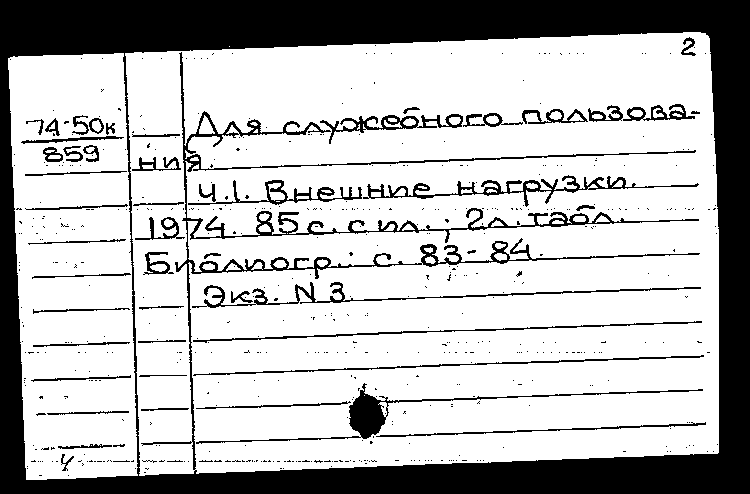 2
74-50к
859
Для служебного пользова-
ния.
Ч.1. Внешние нагрузки.
1974. 85 с. с ил.; 2 л. табл.
Библиогр.: с. 83-84.
Экз. N 3.